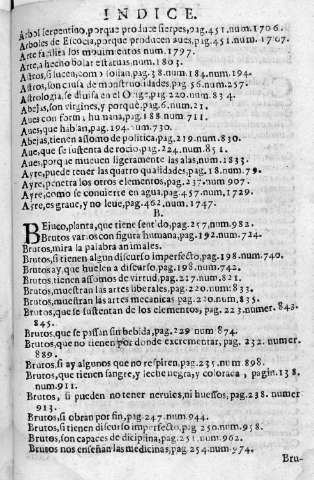 INDICE.
Arbol serpentino, porque produce sierpes, pag.451.num.1706.
Arboles de Escocia, porque producen aues, pag.451.num.1707.
Arte facilita los mouimientos num.1797.
Arte, a hecho bolar estatuas, num.1803.
Astros, si lucen, como solian, pag.38.num.184.num.194.
Astros, son causa de monstruosidades, pag.56.num.257.
Astrologia, se diuisa en el pag.220.num.834.
Abejas, son virgines, y porque, pag.6.num.21.
Aues con forma humana, pag.188.num.711.
Aues, que hablan, pag.194.num.730.
Abejas, tienen assomo de politica, pag.219.num.830.
Aue, que se sustenta de rocio, pag.224.num.851.
Aues, porque mueuen ligeramente las alas, num.1833.
Ayre, puede tener las quatro qualidades, pag.18.num.79.
Ayre, penetra los otros elementos, pag.237.num.907.
Ayre, como se conuierte en agua, pag.457.num.1729.
Ayre, es graue, y no leue, pag.462.num.1747.
B.
BEjuco, planta, que tiene sentido, pag.257.num.982.
Brutos varios con figura humana, pag.192.num.724.
Brutos, mira la palabra animales.
Brutos, si tienen algun discurso imperfecto, pag.198.num.740.
Brutos ay, que huelen a discurso, pag.198.num.742.
Brutos, tienen assomos de virtud, pag.217.num.821.
Brutos, muestran las artes liberales, pag.220.num.833.
Brutos, muestran las artes mecanicas pag.220.num.835.
Brutos, que se sustentan de los elementos, pag.223.numer.843.
845.
Brutos, que se passan sin bebida, pag.229.num 874.
Brutos, que no tienen por donde excrementar, pag. 232. numer.
889.
Brutos, si ay algunos que no respiren, pag.235.num.898.
Brutos, que tienen sangre, y leche negra, y colorada, pagin.138.
num.911.
Brutos, si pueden no tener neruios, ni huessos, pag.238. numer
913.
Brutos, si obran por fin, pag.247.num.944.
Brutos, si tienen discurso imperfecto, pag.250.num.958.
Brutos, son capaces de diciplina, pag.251.num.962.
Brutos nos enseñan las medicinas, pag.254.num.974.
Bru-